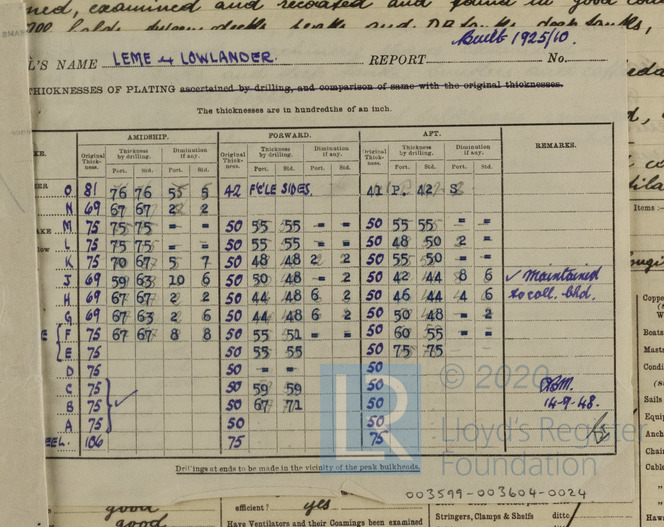 ned, examined and recoated and found in good con
Built 1925/10.
L'S NAME LEME & LOWLANDER. REPORT No.
THICKNESSES OF PLATING ascertained by drilling, and comparison of same with the original thicknesses.
The thicknesses are in hundredths of an inch.
AMIDSHIP. FORWARD. AFT. REMARKS.
KE. Original Thickness. Thickness by drilling. Diminution if any. Original Thickness. Thickness by drilling. Diminution if any. Original Thickness. Thickness by drilling. Diminution if any.
Port. Std. Port. Std. Port. Std. Port. Std. Port. Std. Port. Std.
O 81 76 76 5 5 42 F'CLE SIDES. 41 P. 42 S
N 69 67 67 2 2
AKE M 75 75 75 - - 50 55 55 - - 50 55 55 - -
low L 75 75 75 - - 50 55 55 - - 50 48 50 2 -
K 75 70 67 5 7 50 48 48 2 2 50 55 50 - -
J 69 59 63 10 6 50 50 48 - 2 50 42 44 8 6 ✓ Maintained
H 69 67 67 2 2 50 44 48 6 2 50 46 44 4 6 to coll. bhd.
G 69 67 63 2 6 50 44 48 6 2 50 50 48 - 2
E F 75 67 67 8 8 50 55 51 - - 50 60 55 - -
E 75 50 55 55 50 75 75
D 75 50 - - 50
C 75 50 59 59 50
B 75 ✓ 50 67 71 50 14-9-48.
A 75 50 50
EEL. 106 75 75
Drillings at ends to be made in the vicinity of the peak bulkheads.
© 2020
LR
Lloyd's Register
Foundation
003599-003604-0024
good
efficient? yes
good
Have Ventilators and their Coamings been examined
Stringers, Clamps & Shelfs ditto
Items:-
Coppe
Boats
Masts
Condi
Sails
Equip
Anch
Chain
Cable